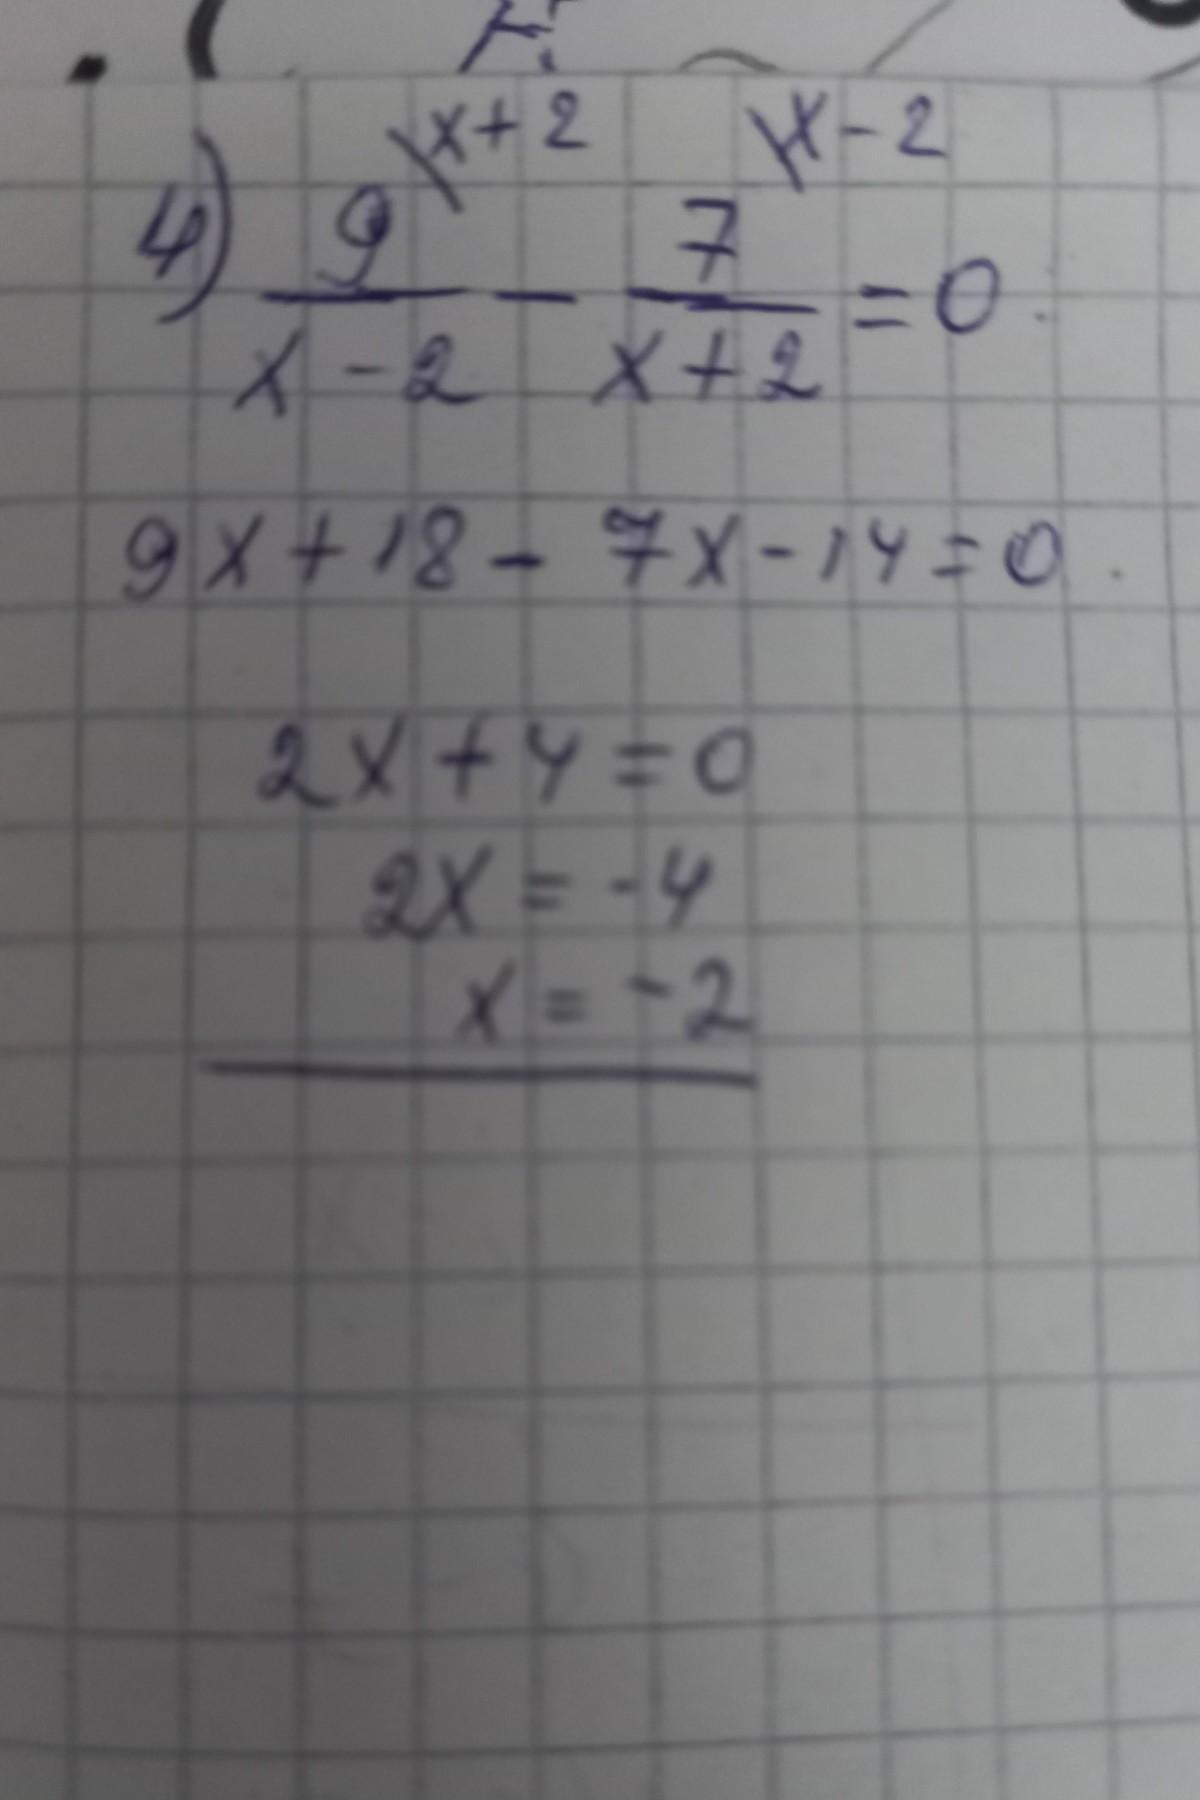 \x+2 \x-2
4) 9/(x-2) - 7/(x+2) = 0.
9x+18-7x-14=0.
2x+4=0
2x=-4
x=-2